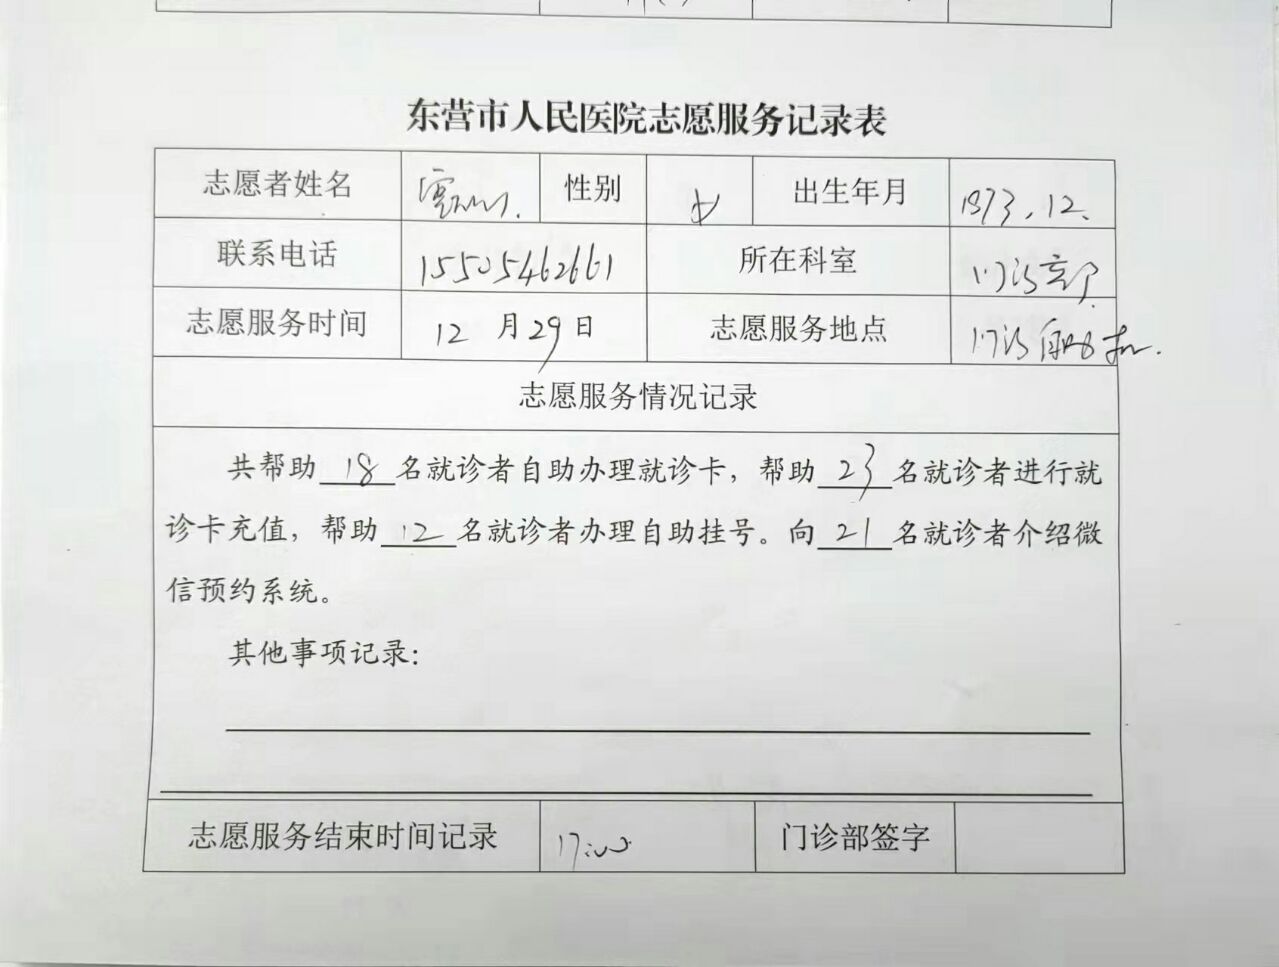 东营市人民医院志愿服务记录表
志愿者姓名 性别 女 出生年月 1973.12.
联系电话 15505462661 所在科室 门诊部
志愿服务时间 12月29日 志愿服务地点 门诊自助机.
志愿服务情况记录
共帮助18名就诊者自助办理就诊卡，帮助23名就诊者进行就
诊卡充值，帮助12名就诊者办理自助挂号。向21名就诊者介绍微
信预约系统。
其他事项记录：
志愿服务结束时间记录 17:00 门诊部签字